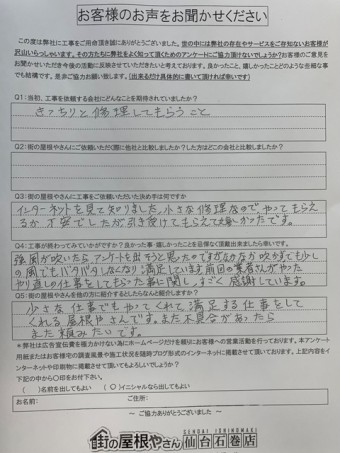 お客様のお声をお聞かせください
この度は弊社に工事をご用命頂き誠にありがとうございました。世の中には弊社の存在やサービスをご存知ないお客様が
沢山いらっしゃいます。その方たちに弊社をよく知って頂くためのアンケートにご協力頂けないでしょうか?お客様のご意見を
お聞かせいただき今後の活動に反映させていただきたいと考えております。良かったこと、嬉しかったことどのような些細な事
でも結構です。是非ご協力お願い致します。(出来るだけ具体的に書いて頂ければ幸いです)
Q1:当初、工事を依頼する会社にどんなことを期待されていましたか?
きっちりと修理してもらうこと
Q2:街の屋根やさんにご依頼いただく際に他社と比較しましたか?した方はどこの会社と比較しましたか?
Q3:街の屋根やさんに工事をご依頼いただいた決め手は何ですか
インターネットを見て知りました。小さな修理なので、やってもらえ
るか不安でしたが引き受けてもらえて嬉しかったです。
Q4:工事が終わってみていかがですか?良かった事・嬉しかったことを忌憚なく頂戴出来ましたら幸いです。
強風が吹いたら、アンケートを出そうと思ったのですがなかなか吹かず、でも少し
の風でもバタバタしなくなり満足しています。前回の業者さんがやった
やり直しの仕事をしてもらった事に関し、すごく感謝しています。
Q5:街の屋根やさんを他の方に紹介するとしたらなんと紹介しますか?
小さな仕事でもやってくれて、満足する仕事をして
くれる屋根やさんです。また不具合があったら
また頼みたいです。
*弊社は広告宣伝費を極力かけない為にホームページだけを頼りにお客様への営業活動を行っております。本アンケート
用紙またはお客様宅の調査風景や施工状況を随時ブログ形式のインターネットに掲載させて頂いております。上記内容をイ
ンターネットや印刷物に掲載させて頂いてもよろしいでしょうか?
下記の中から〇印をお付下さい。
( )名前を出してもよい (〇)イニシャルなら出してもよい
お名前: ご住所:
~ ご協力ありがとうございました ~
SENDAI ISHINOMAKI
街の屋根やさん 仙台石巻店